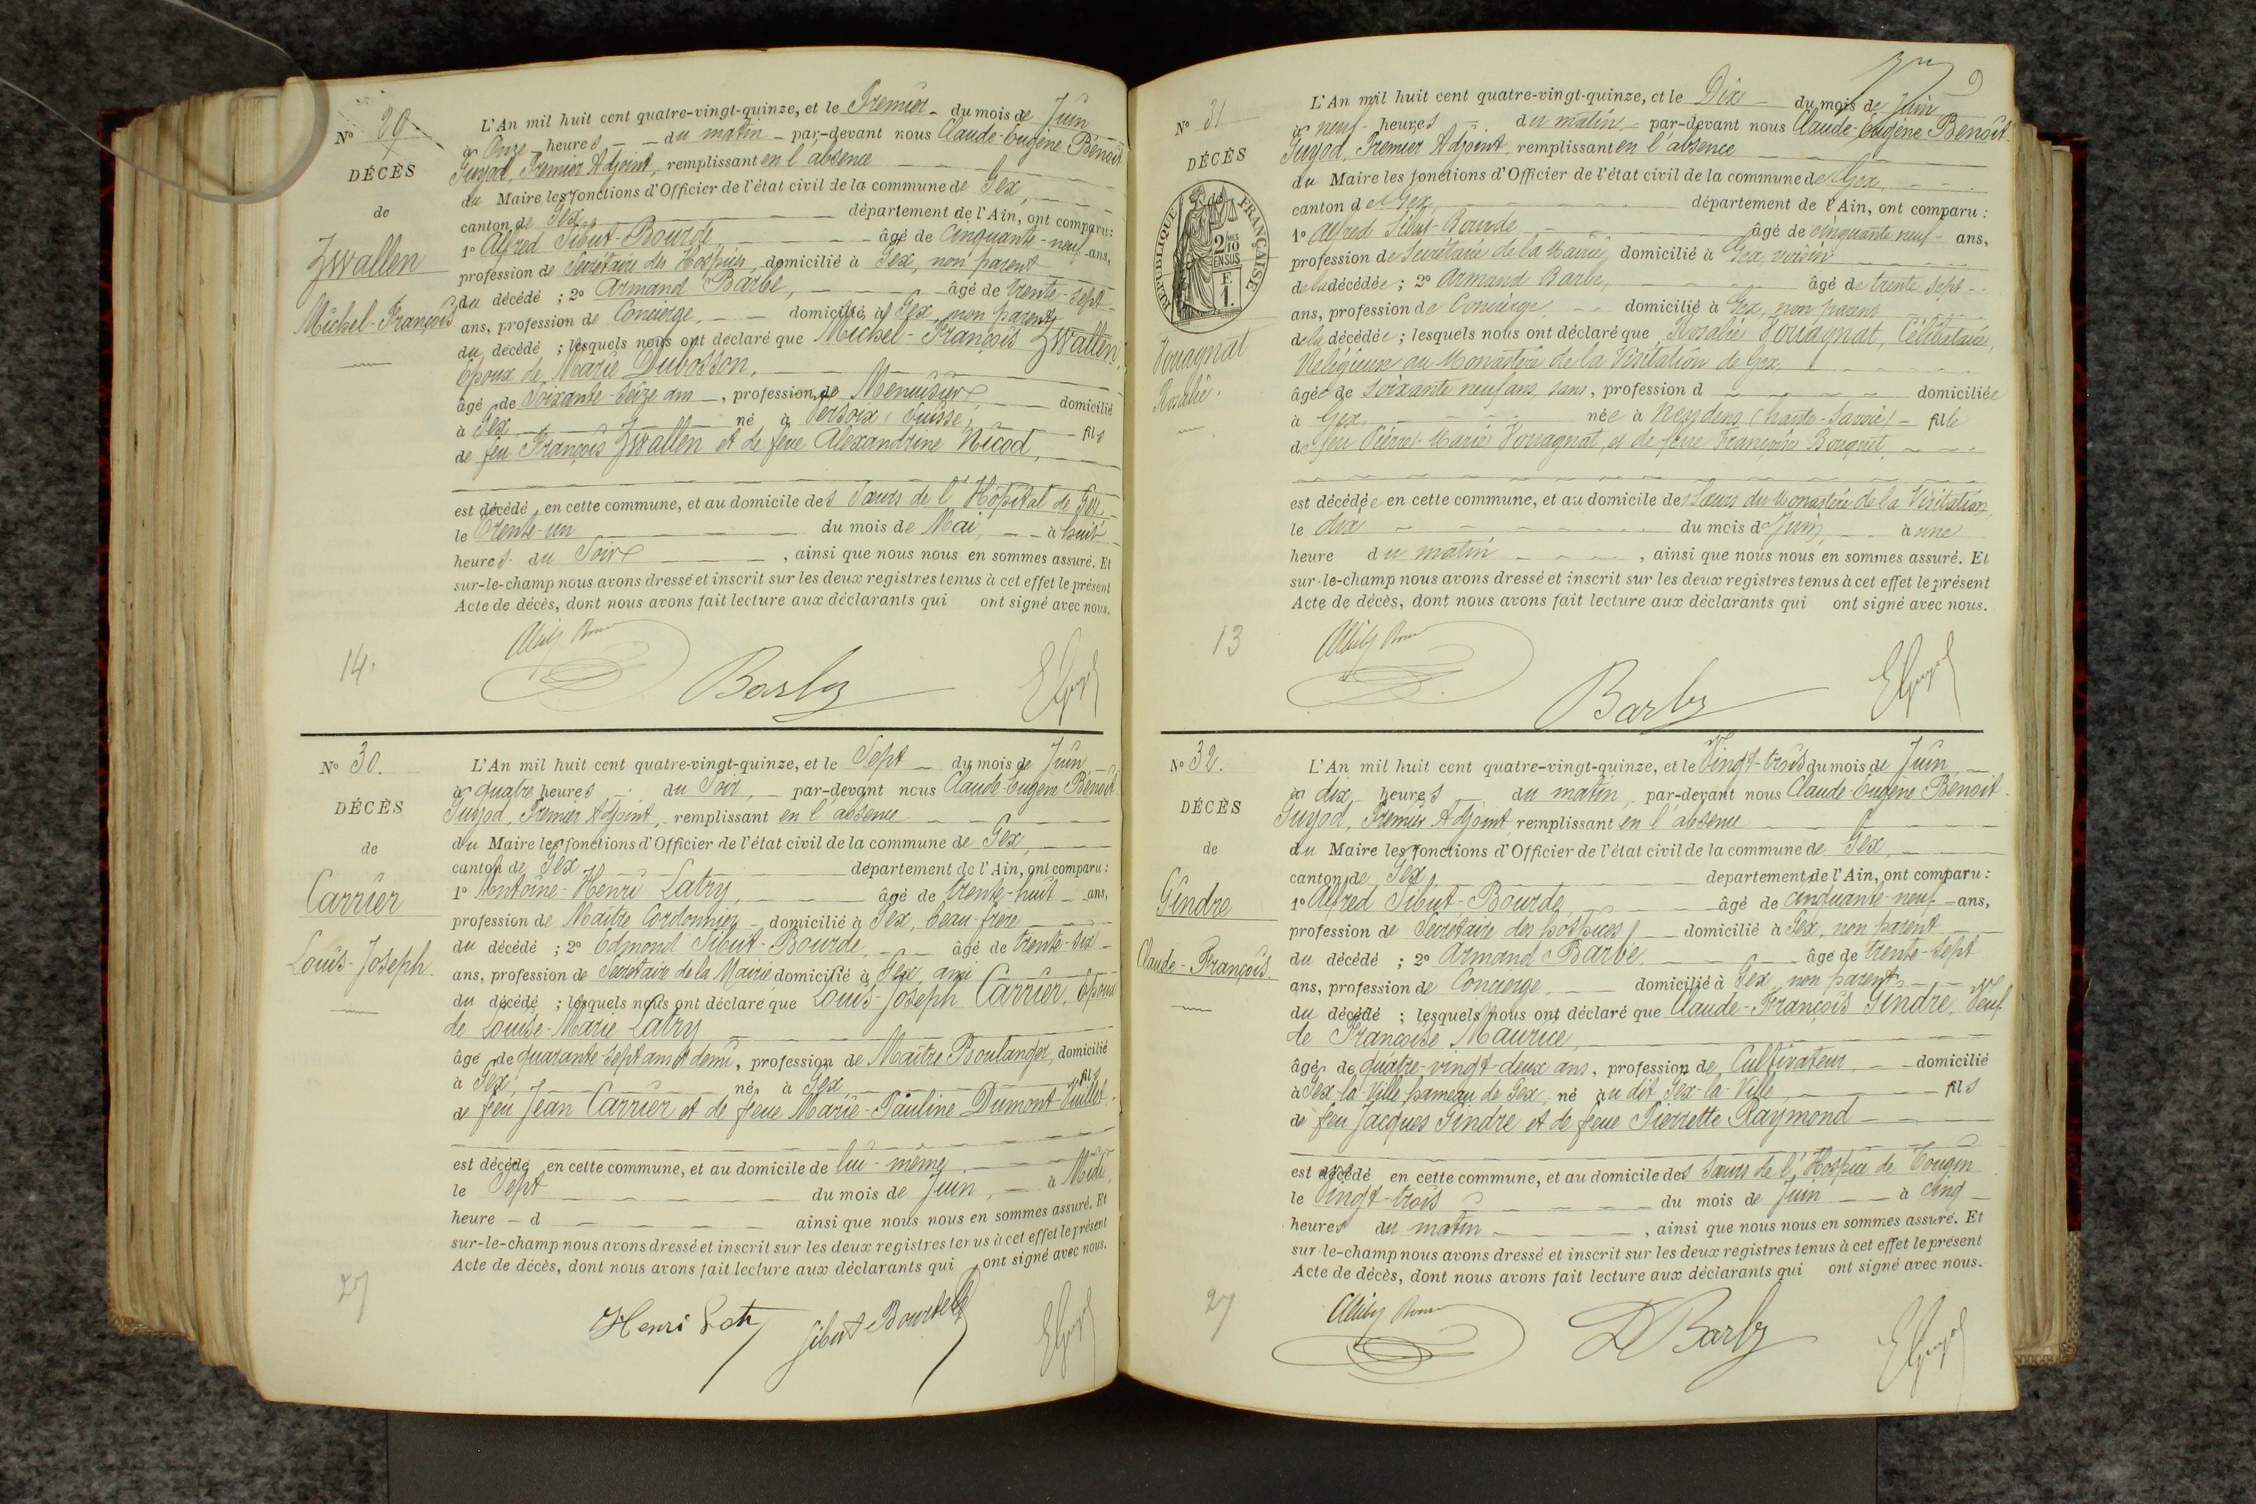 N° 29
DÉCÈS
de
Zwallen
Michel-François
L'An mil huit cent quatre-vingt-quinze, et le Premier du mois de Juin
à Onze heures du matin par-devant nous Claude-Eugène Benoît
Guyod, Premier Adjoint, remplissant en l'absence
du Maire les fonctions d'Officier de l'état civil de la commune de Gex,
canton de Gex département de l'Ain, ont comparu :
1° Alfred Sibut-Bourde, âgé de cinquante-neuf ans,
profession de Secrétaire des Hospices, domicilié à Gex, non parent
du décédé ; 2° Armand Barbe, âgé de trente-sept
ans, profession de Concierge, domicilié à Gex, non parent
du décédé ; lesquels nous ont déclaré que Michel-François Zwallen,
Epoux de Marie Dubosson,
âgé de Soixante-Seize ans, profession de Menuisier domicilié
à Gex né à Versoix (Suisse) fils
de feu François Zwallen et de feue Alexandrine Nicod,
est décédé en cette commune, et au domicile des Sœurs de l'Hôpital de Gex
le Trente-un du mois de Mai, à huit
heures du Soir, ainsi que nous nous en sommes assuré. Et
sur-le-champ nous avons dressé et inscrit sur les deux registres tenus à cet effet le présent
Acte de décès, dont nous avons fait lecture aux déclarants qui ont signé avec nous.
14
Barbe
N° 30.
DÉCÈS
de
Carrier
Louis-Joseph
L'An mil huit cent quatre-vingt-quinze, et le Sept du mois de Juin
à quatre heures du Soir, par-devant nous Claude-Eugène Benoît
Guyod, Premier Adjoint, remplissant en l'absence
du Maire les fonctions d'Officier de l'état civil de la commune de Gex,
canton de Gex département de l'Ain, ont comparu :
1° Antoine-Henri Latry, âgé de trente-huit ans,
profession de Maître Cordonnier domicilié à Gex, beau-frère
du décédé ; 2° Edmond Sibut-Bourde, âgé de trente-six
ans, profession de Secrétaire de la Mairie domicilié à Gex, ami
du décédé ; lesquels nous ont déclaré que Louis-Joseph Carrier, Epoux
de Louise-Marie Latry
âgé de quarante-sept ans et demi, profession de Maître Boulanger, domicilié
à Gex né à Gex fils
de feu Jean Carrier et de feue Marie-Pauline Dumont-Vuillet.
est décédé en cette commune, et au domicile de lui-même
le Sept du mois de Juin, à Midi,
heure d ainsi que nous nous en sommes assuré. Et
sur-le-champ nous avons dressé et inscrit sur les deux registres tenus à cet effet le présent
Acte de décès, dont nous avons fait lecture aux déclarants qui ont signé avec nous.
27
Henri Latry Sibut-Bourde
9
N° 31
DÉCÈS
de
RÉPUBLIQUE FRANÇAISE
2 DMES 10
EN SUS
F
1.
Vouagnat
Rosalie.
L'An mil huit cent quatre-vingt-quinze, et le Dix du mois de Juin
à neuf heures du matin, par-devant nous Claude-Eugène Benoît
Guyod, Premier Adjoint, remplissant en l'absence
du Maire les fonctions d'Officier de l'état civil de la commune de Gex,
canton de Gex département de l'Ain, ont comparu :
1° Alfred Sibut-Bourde âgé de cinquante neuf ans,
profession de Secrétaire de la Mairie, domicilié à Gex, voisin
de la décédée ; 2° Armand Barbe, âgé de trente sept
ans, profession de Concierge, domicilié à Gex, non parent
de la décédée ; lesquels nous ont déclaré que Rosalie Vouagnat, Célibataire,
Religieuse au Monastère de la Visitation de Gex,
âgée de soixante neuf ans, sans, profession d domiciliée
à Gex, née à Neydens (Haute-Savoie) fille
de feu Pierre-Marie Vouagnat, et de feue Françoise Bouquet,
est décédée en cette commune, et au domicile des Sœurs du Monastère de la Visitation,
le dix du mois de Juin, à une
heure du matin, ainsi que nous nous en sommes assuré. Et
sur-le-champ nous avons dressé et inscrit sur les deux registres tenus à cet effet le présent
Acte de décès, dont nous avons fait lecture aux déclarants qui ont signé avec nous.
13
Barbe
N° 32.
DÉCÈS
de
Gindre
Claude-François
L'An mil huit cent quatre-vingt-quinze, et le Vingt-trois du mois de Juin
à dix heures du matin, par-devant nous Claude-Eugène Benoît
Guyod, Premier Adjoint, remplissant en l'absence
du Maire les fonctions d'Officier de l'état civil de la commune de Gex,
canton de Gex, département de l'Ain, ont comparu :
1° Alfred Sibut-Bourde, âgé de cinquante-neuf ans,
profession de Secrétaire des hospices, domicilié à Gex, non parent
du décédé ; 2° Armand Barbe âgé de trente-sept
ans, profession de Concierge, domicilié à Gex, non parent,
du décédé ; lesquels nous ont déclaré que Claude-François Gindre, Veuf
de Françoise Maurice,
âgé de quatre-vingt-deux ans, profession de Cultivateur, domicilié
à Gex-la-Ville, hameau de Gex, né au dit Gex-la-Ville, fils
de feu Jacques Gindre et de feue Pierrette Raymond
est décédé en cette commune, et au domicile des Sœurs de l'Hospice de Tougin
le Vingt-trois du mois de Juin à cinq
heures du matin, ainsi que nous nous en sommes assuré. Et
sur-le-champ nous avons dressé et inscrit sur les deux registres tenus à cet effet le présent
Acte de décès, dont nous avons fait lecture aux déclarants qui ont signé avec nous.
27
Barbe